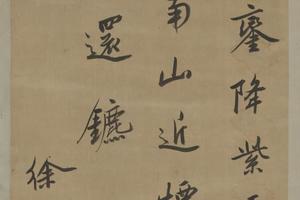 鑾降紫
南山近
還鑣
徐